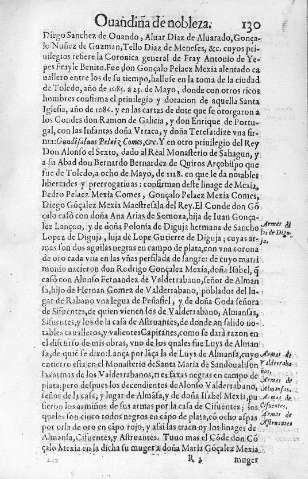 Ouandiña de nobleza. 130
Diego Sanchez de Ouando, Aluar Diaz de Aluarado, Gonça-
lo Nuñez de Guzman, Tello Diaz de Meneses, &c. cuyos pri-
uilegios refiere la Coronica general de Fray Antonio de Ye-
pes Frayle Benito. Fue don Gonçalo Pelaez Mexia alentado ca
uallero entre los de su tiempo, hallose en la toma de la ciudad
de Toledo, año de 1085. a 25. de Mayo, donde con otros ricos
hombres confirma el priuilegio y dotacion de aquella Santa
Iglesia, año de 1086. y en las cartas de dote que se otorgaron a
los Condes don Ramon de Galicia, y don Enrique de Portu-
gal, con las Infantas doña Vrraca, y doña Teresa: dize vna fir-
ma: Gundisaluus Pelaiz Comes, &c. Y en otro priuilegio del Rey
Don Alonso el Sexto, dado al Real Monasterio de Sahagun, y
a su Abad don Bernardo Bernardez de Quiros Arçobispo que
fue de Toledo, a ocho de Mayo, de 1118. en que le da notables
libertades y prerrogatiuas: confirman deste linage de Mexia,
Pedro Pelaez Mexia Comes, Gonçalo Pelaez Mexia Comes,
Diego Gõçalez Mexia Maestresala del Rey. El Conde don Gõ
çalo casò con doña Ana Arias de Somoza, hija de Iuan Gonça-
lez Lançon, y de doña Polonia de Diguja hermana de Sancho
Lopez de Diguja, hija de Lope Gutierrez de Diguja, cuyas ar-
mas son dos aguilas negras en campo de plata, con vna corona
de oro cada vna en las vñas perfilada de sangre: de cuyo matri
monio nacieron don Rodrigo Gonçalez Mexia, doña Isabel, q̃
casò con Alonso Fernandez de Valderrabano, señor de Almen
sa, hijo de Hernan Gomez de Valderrabano, poblador del lu-
gar de Rabano vna legua de Peñafiel, y de doña Goda señora
de Sifuentes, de quien vienen los de Valderrabano, Almansas,
Sifuentes, y los de la casa de Astreantes, de donde an salido no-
tables caualleros, y valientes Capitanes, como se darà razon en
el discurso de mis obras, vno de los quales fue Luys de Alman
sa, de què se dixo: Lança por lãça la de Luys de Almansa, cuyo
entierro està en el Monasterio de Santa Maria de Sandoual: son
las armas de los Valderrabanos, seis faxas negras en campo de
plata: pero despues los decendientes de Alonso Valderrabano,
señor de la casa, y lugar de Almãsa, y de doña Isabel Mexia, pu
sieron los arminos de sus armas por la casa de Cifuentes, los
quales son cinco roeles negros en cãpo de plata, cõ ocho aspas
por orla de oro en cãpo rojo, y assi las traen oy los linages de
Almansa, Cifuentes, y Astreantes. Tuuo mas el Cõde don Gõ
çalo Mexia en la dicha su muger a doña Maria Gõçalez Mexia
R 2 muger
Armas de
los de Digu
ja.
Armas de
Valderraba
no,
Armas de
Almansa,
Armas de
Cifuentes,
Armas de
Astreantes